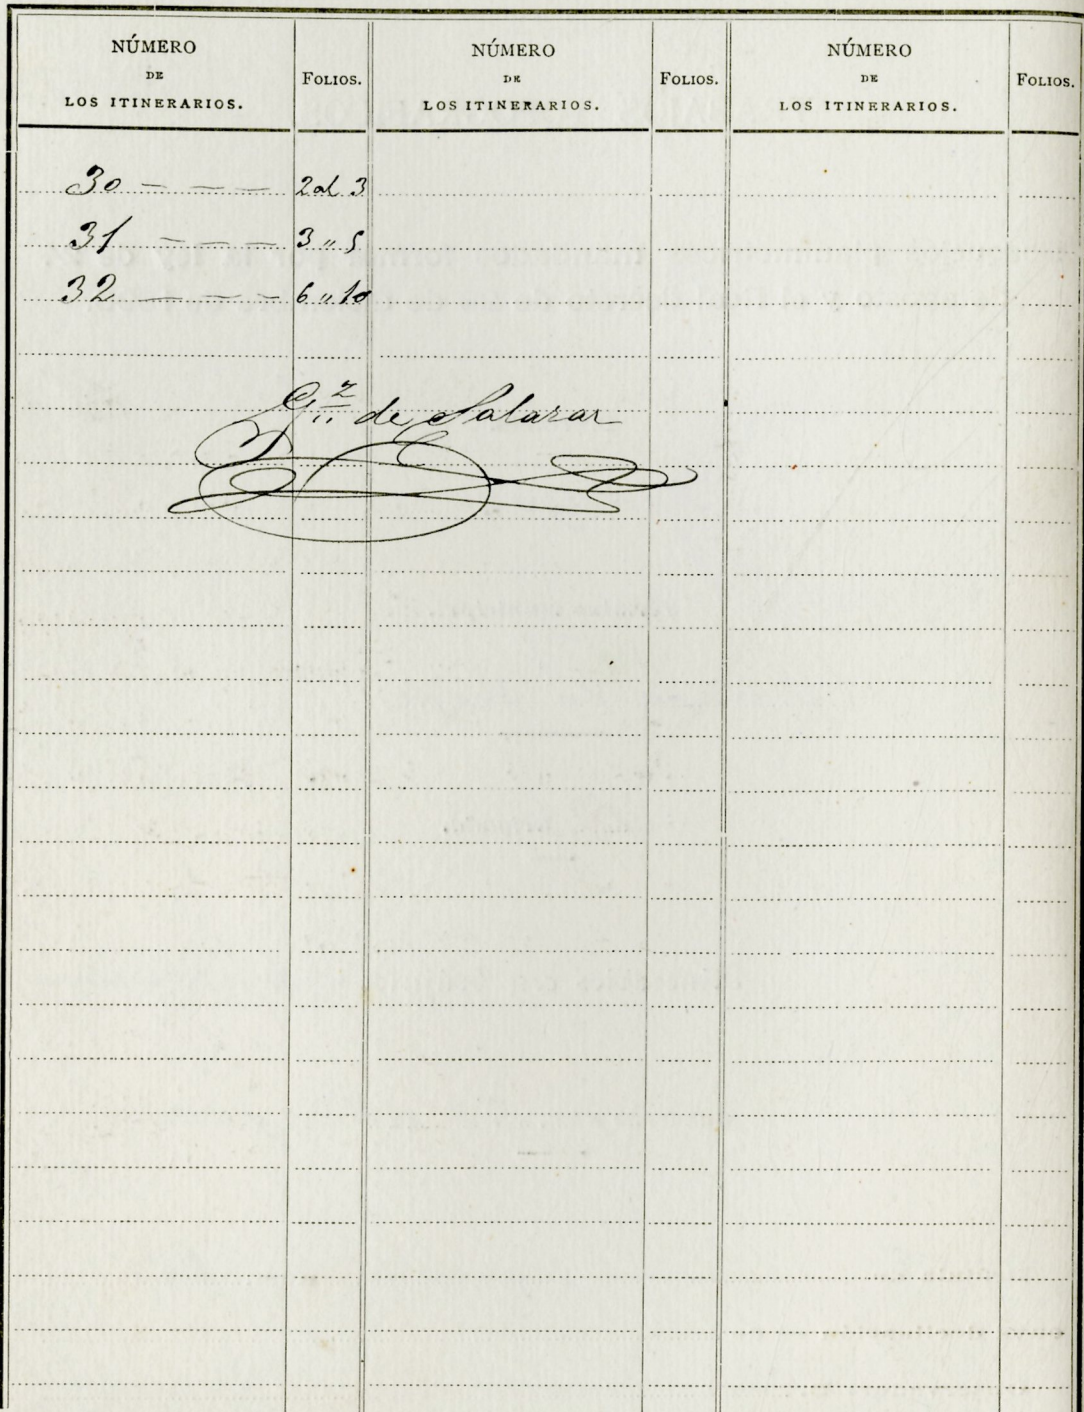 NÚMERO
DE
LOS ITINERARIOS.
FOLIOS.
NÚMERO
DE
LOS ITINERARIOS.
FOLIOS.
NÚMERO
DE
LOS ITINERARIOS.
FOLIOS.
30 — — — 2 al 3
31 — — — 3 " 5
32 — — — 6 " 10
Gz de Salazar